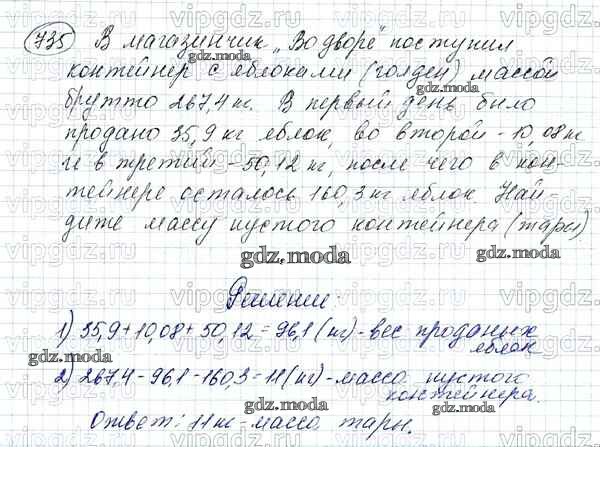 735 В магазинчик „Во дворе" поступил
контейнер с яблоками (голден) массой
брутто 267,4 кг. В первый день было
продано 35,9 кг яблок, во второй - 10,08 кг
и в третий - 50,12 кг, после чего в кон-
тейнере осталось 160,3 кг яблок. Най-
дите массу пустого контейнера (тары)
gdz.moda
Решение.
1) 35,9 + 10,08 + 50,12 = 96,1 (кг) - вес проданых
яблок
2) 267,4 - 96,1 - 160,3 = 11 (кг) - масса пустого
контейнера.
Ответ: 11 кг - масса тары.